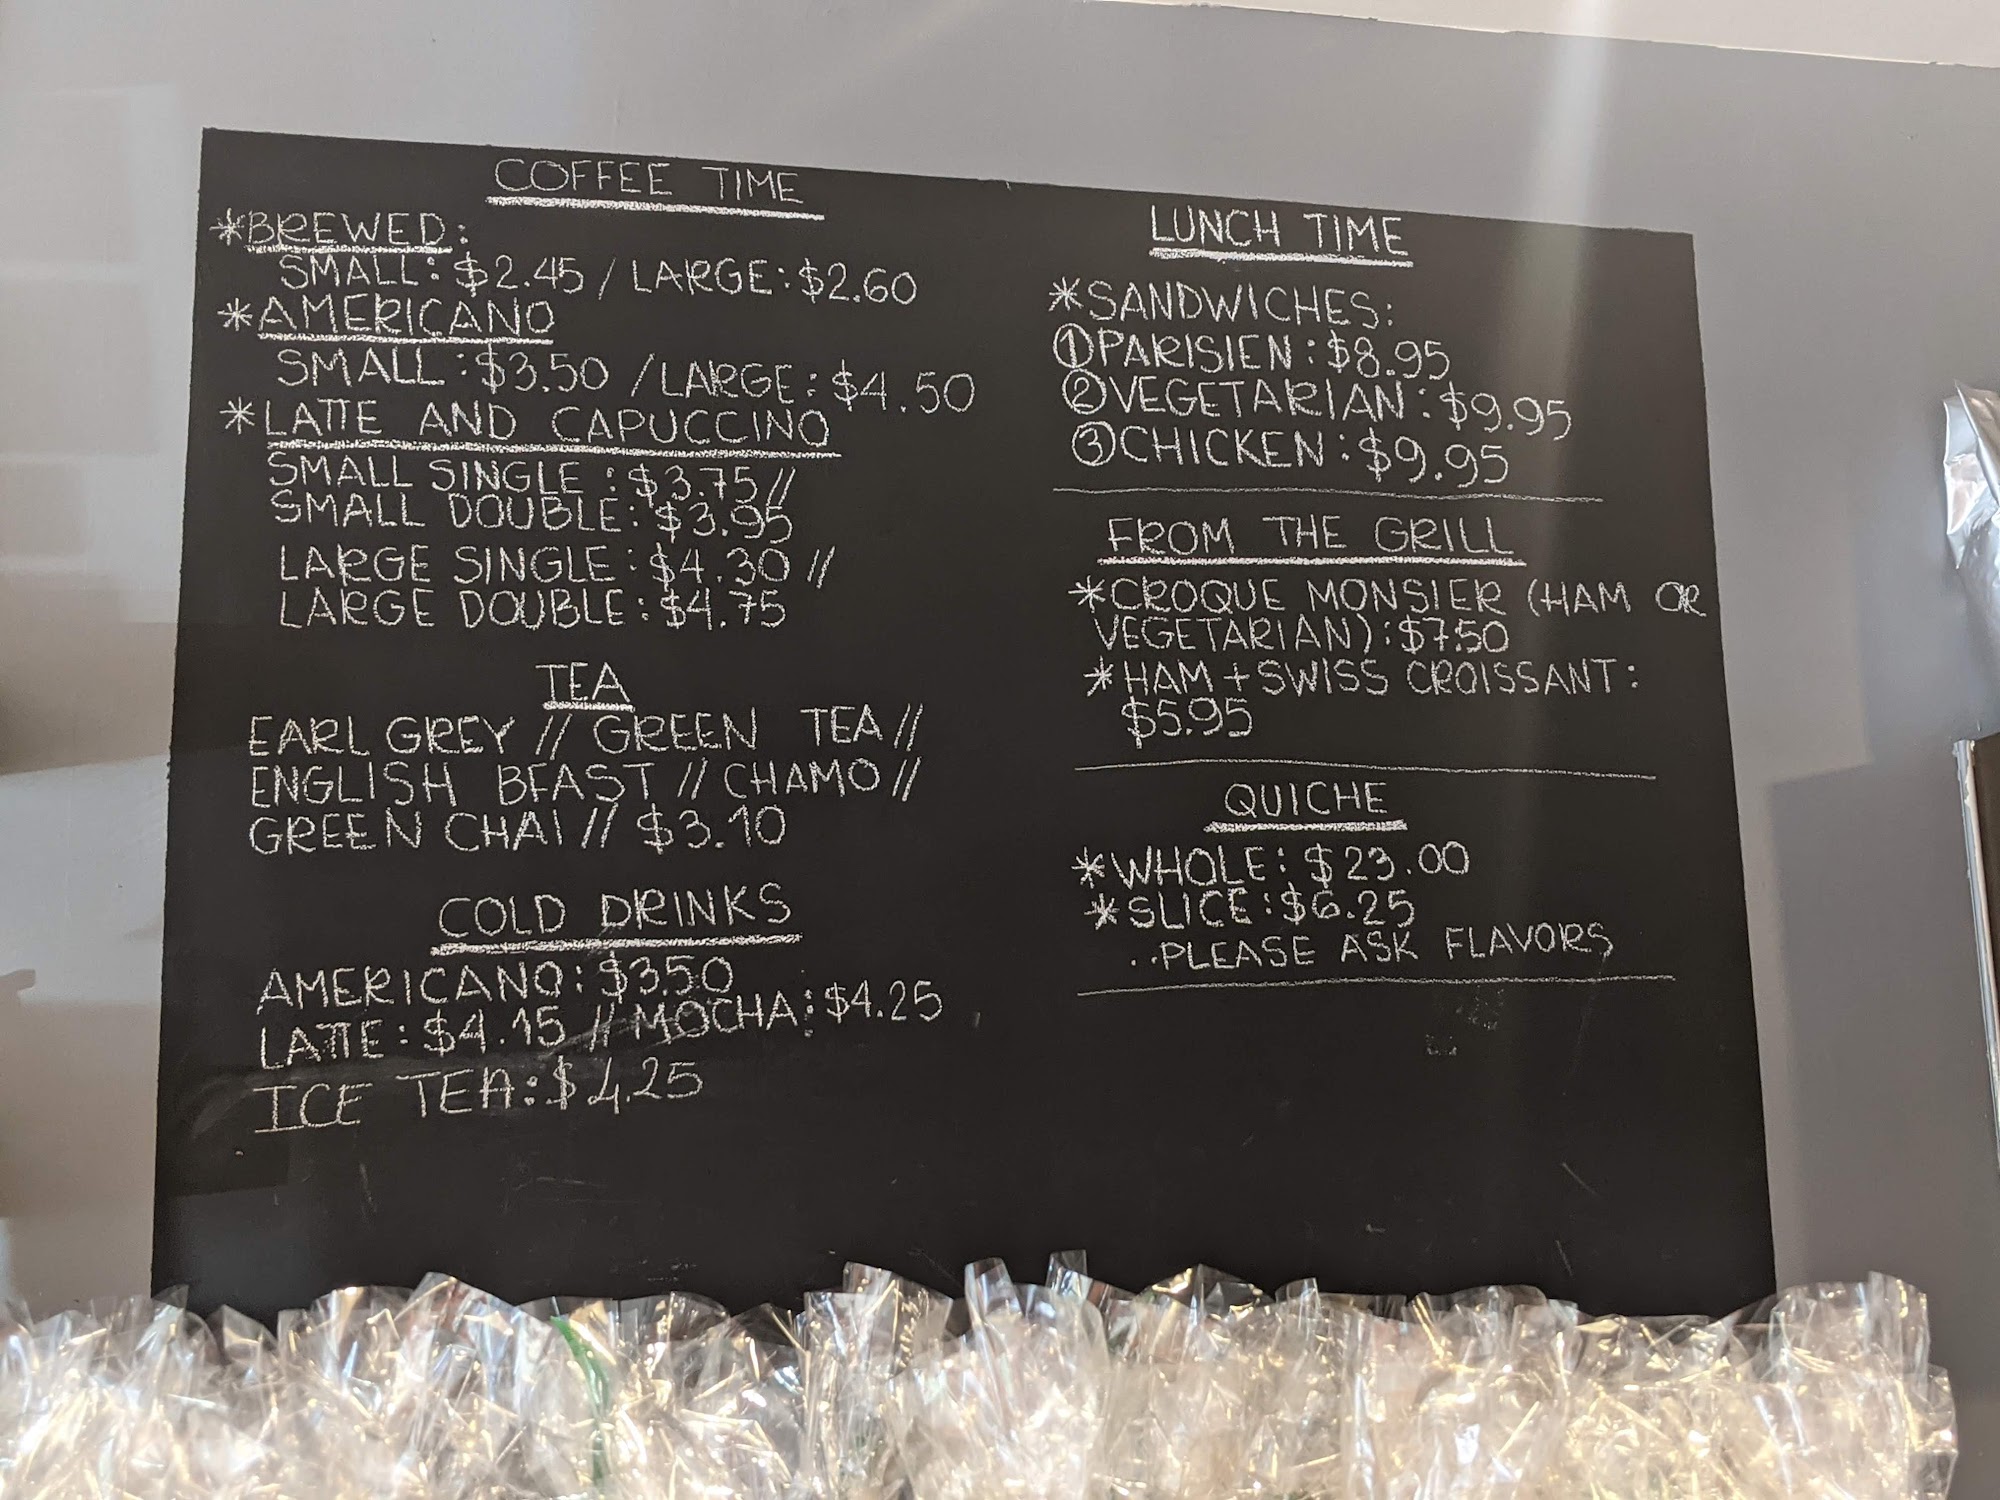 COFFEE TIME
*BREWED:
SMALL: $2.45 / LARGE: $2.60
*AMERICANO
SMALL: $3.50 / LARGE: $4.50
*LATTE AND CAPUCCINO
SMALL SINGLE: $3.75 //
SMALL DOUBLE: $3.95
LARGE SINGLE: $4.30 //
LARGE DOUBLE: $4.75
TEA
EARL GREY // GREEN TEA //
ENGLISH BFAST // CHAMO //
GREEN CHAI // $3.10
COLD DRINKS
AMERICANO: $3.50
LATTE: $4.15 // MOCHA: $4.25
ICE TEA: $4.25
LUNCH TIME
*SANDWICHES:
①PARISIEN: $8.95
②VEGETARIAN: $9.95
③CHICKEN: $9.95
FROM THE GRILL
*CROQUE MONSIER (HAM OR
VEGETARIAN): $7.50
*HAM + SWISS CROISSANT:
$5.95
QUICHE
*WHOLE: $23.00
*SLICE: $6.25
..PLEASE ASK FLAVORS